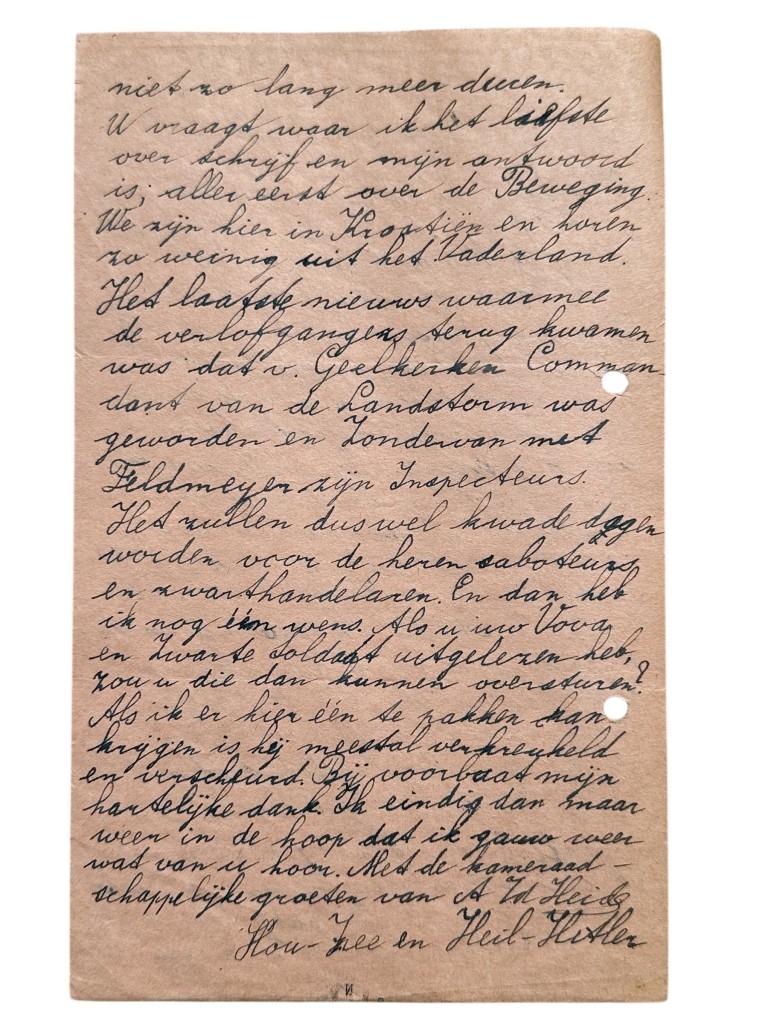 niet zo lang meer duren.
U vraagt waar ik het liefste
over schrijf en mijn antwoord
is; aller eerst over de Beweging.
We zijn hier in Kroatiën en horen
zo weinig uit het Vaderland.
Het laatste nieuws waarmee
de verlofgangers terug kwamen
was dat v. Geelkerken Comman-
dant van de Landstorm was
geworden en Zondervan met
Feldmeyer zijn Inspecteurs.
Het zullen dus wel kwade dagen
worden voor de heren saboteurs
en zwarthandelaren. En dan heb
ik nog één wens. Als u uw Vova
en Zwarte Soldaat uitgelezen heb,
zou u die dan kunnen oversturen?
Als ik er hier één te pakken kan
krijgen is hij meestal verkreukeld
en verscheurd. Bij voorbaat mijn
hartelijke dank. Ik eindig dan maar
weer in de hoop dat ik gauw weer
wat van u hoor. Met de kameraad-
schappelijke groeten van A Vd Heide
Hou-Zee en Heil-Hitler
И